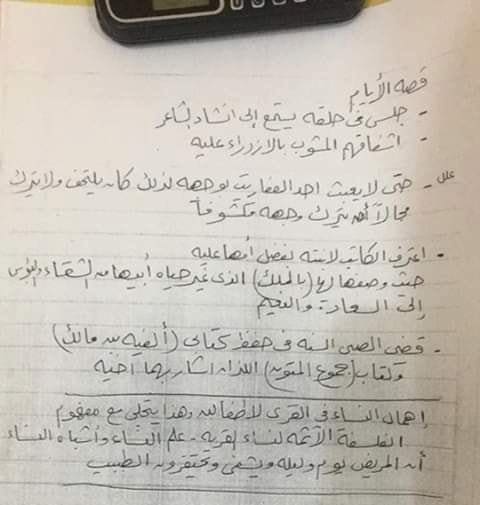 قصه الأيام
- جلس فى حلقه يستمع إلى انشاد لشاعر
- اشفاقهم المشوب بالازدراء عليه
علل - حتى لا يعبث احد العفاريت بوجهه لذلك كان يلتحف ولا يترك
مجالاً أن يترك وجهه مكشوفاً
- اعترف الكاتب لابنته بفضل أمها عليه
حيث وصفها لها (بالملك) الذى غير حياه أبيها من الشقاء والبؤس
إلى السعادة والنعيم
- قضى الصبى السنه فى حفظ كتابى (ألفيه بن مالك)
وكتاب (مجموع المتون) اللذان اشار بهما أخيه
إهمال النساء فى القرى لأطفالهن وهذا يتجلى مع مفهوم
الفلسفة الآثمه لنساء القريه - علم النساء وأشباه النساء
أن المريض يوم وليله ويشفى ويحتقرون الطبيب